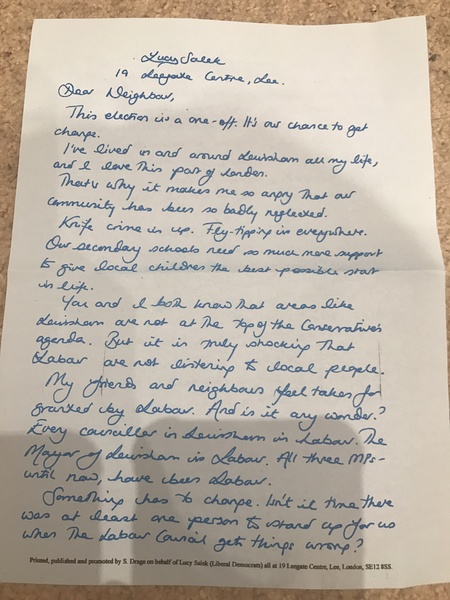 Lucy Salek
19 Leegate Centre, Lee.
Dear Neighbour,
This election is a one-off. It's our chance to get
change.
I've lived in and around Lewisham all my life,
and I love this part of London.
That's why it makes me so angry that our
community has been so badly neglected.
Knife crime is up. Fly-tipping is everywhere.
Our secondary schools need so much more support
to give local children the best possible start
in life.
You and I both know that areas like
Lewisham are not at the top of the Conservatives
agenda. But it is truly shocking that
Labour are not listening to local people.
My friends and neighbours feel taken for
granted by Labour. And is it any wonder?
Every councillor in Lewisham is Labour. The
Mayor of Lewisham is Labour. All three MPs -
until now, have been Labour.
Something has to change. Isn't it time there
was at least one person to stand up for us
when the Labour Council gets things wrong?
Printed, published and promoted by S. Drage on behalf of Lucy Salek (Liberal Democrats) all at 19 Leegate Centre, Lee, London, SE12 8SS.